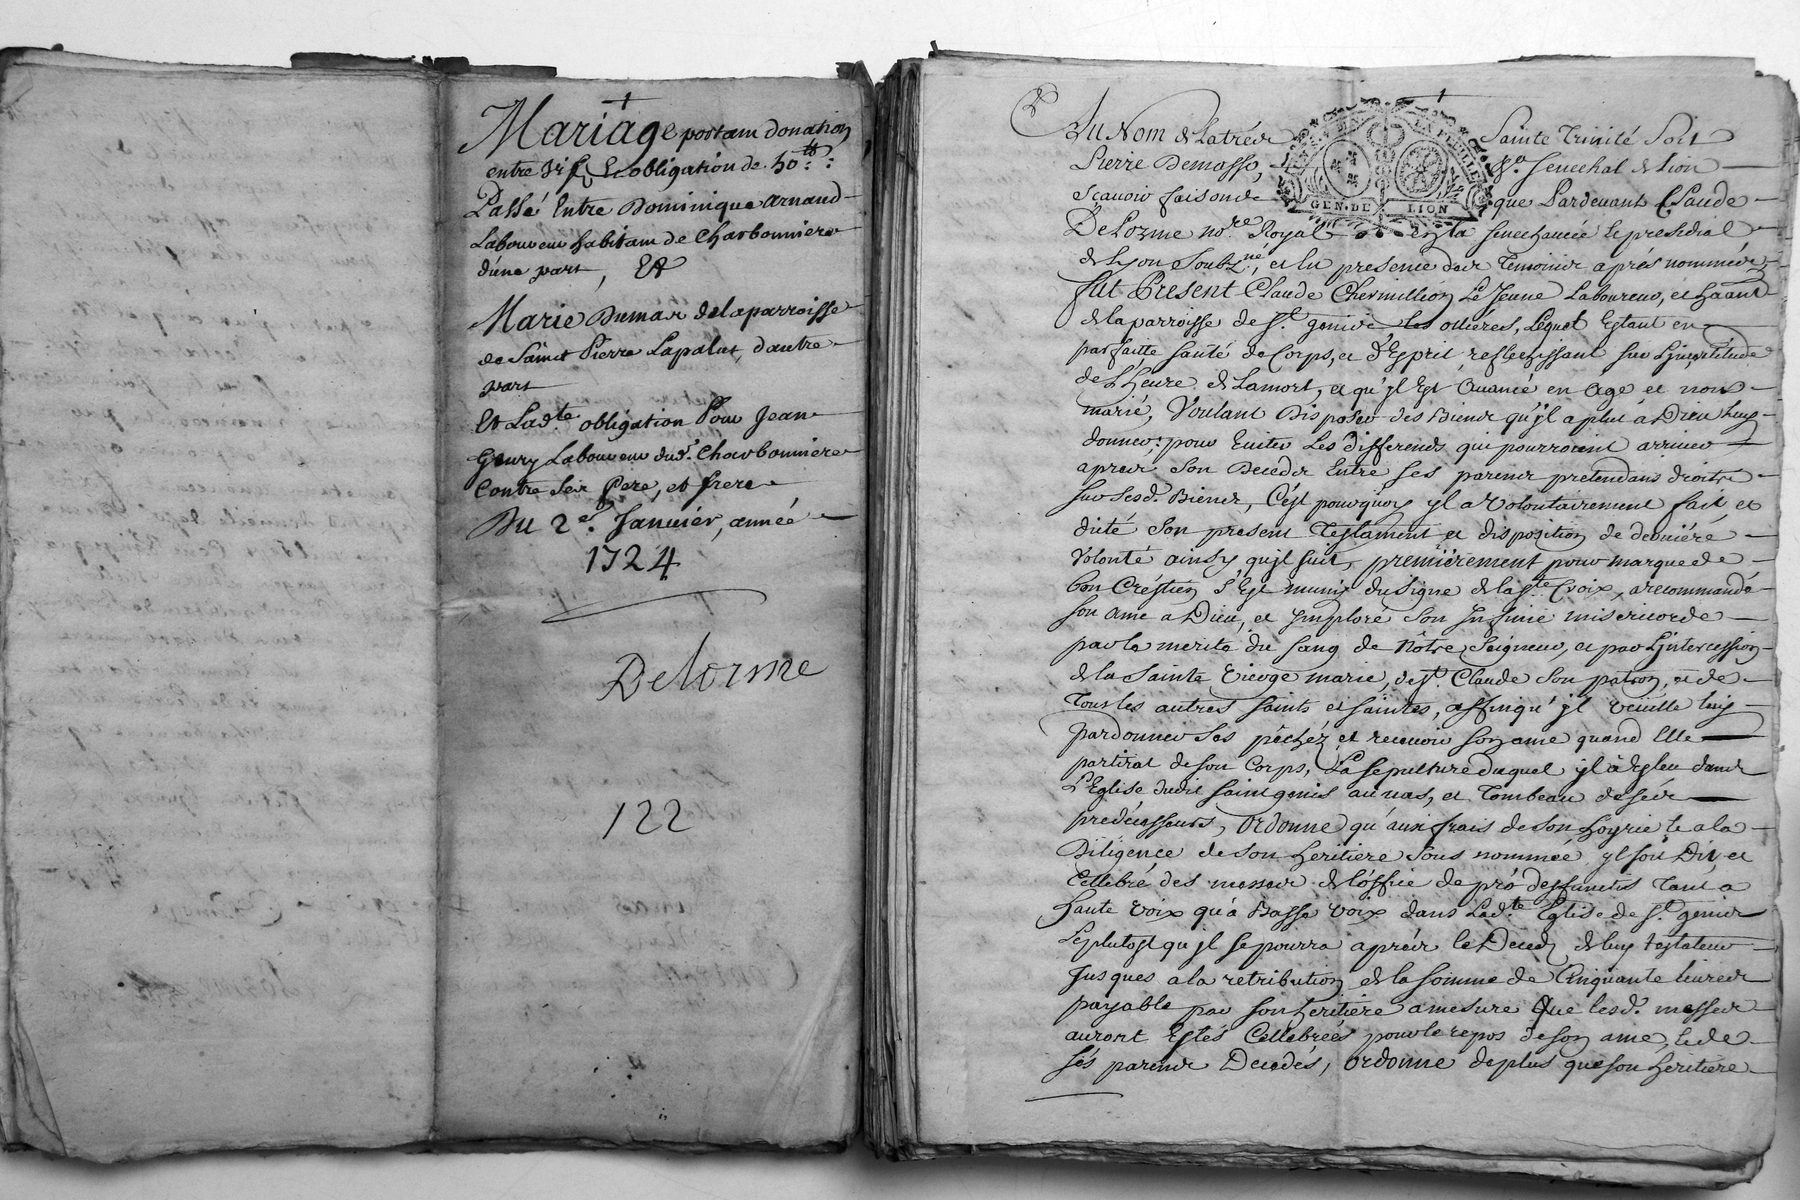 Mariage portant donation
entre vifs Et obligation de 50 ##
Passé Entre Dominique Arnaud
Laboureur habitant de Charbonniere
d'une part, Et
Marie Dumas de la parroisse
de Saint Pierre Lapalut, d'autre
part
Et Lad.te obligation Pour Jean
Laboureur dud.t Charbonniere
Contre Ses Pere, et frere
Du 2e. Janvier, année
1724
Delorme
122
Au Nom de la très Sainte Trinité Soit
Pierre Demosso, Senechal de Lion
Sçavoir faisons que Pardevant Claude
DeLorme no.re Royal en la senechaucée et presidial
de Lyon Soubz.né, et en presence des Temoins aprés nommés,
fut Present Claude Chermillion Le Jeune Laboureur, et haant
de la parroisse de S.t genis les ollières, Lequel Estant en
parfaitte santé de Corps, et d'Esprit, reflechissant sur L'jncertitude
de L'heure de La mort, et qu'jl Est Avancé en Age et non
marié, Voulant Disposer des Biens qu'jl a plut à Dieu luy
donner; pour Eviter Les differends qui pourroient arriver
aprés Son Decedes Entre ses parens pretendans droits
sur Sesd. Biens, C'est pourquoy yl a Volontairement fait et
dicté Son present Testament et disposition de derniére
Volonté ainsy qu'jl suit, premiérement pour marque de
bon Créstien s'Est muny du signe de la s.te Croix, a recommandé
son ame a Dieu, et jmploré Son jnfinie misericorde
par le merite du sang de Nôtre Seigneur, et par L'jntercession
de la Sainte Vierge marie, de s.t Claude Son patron, et de
Tous les autres saints et saintes, affinqu'jl veuille luy
pardonner Ses péchéz et recevoir son ame quand Elle
partirat de son Corps, La sepulture duquel jl à Esleu dans
L'Eglise dudit saint genis au vas, et Tombeau de ses
predecesseurs, ordonne qu'aux frais de son hoyrie et a la
Diligence de son heritiere Sous nommée, yl soit Dit, et
Cellebré des messes de l'office de pro deffunctis Tant a
haute voix qu'a Basse voix dans Lad.te Eglise de s.t genis
Le plutost qu'jl se pourra aprés le Decedz de luy testateur
Jusques a la retribution de la somme de Cinquante livres
payable par son heritiere a mesure Que lesd. messes
auront Estés Cellebrées pour le repos de son ame, et de
sés parens Decedés, ordonne de plus que son heritiere
GEN. DE LION